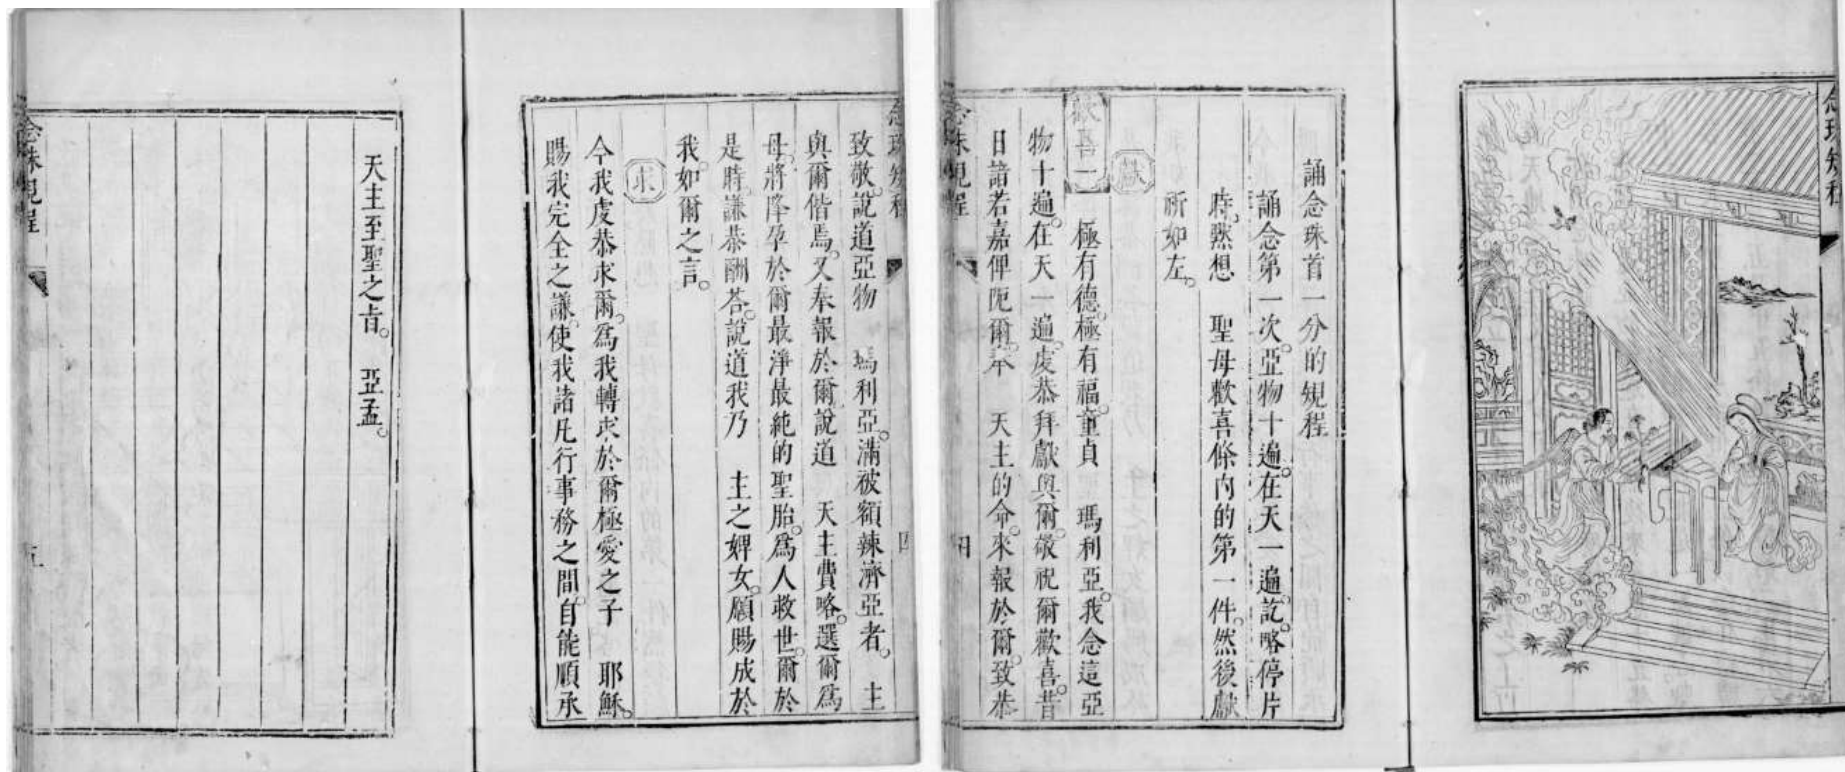 念珠規程
誦念珠首一分的規程
誦念第一次亞物十遍。在天一遍。訖。略停片
時。黙想 聖母歡喜條內的第一件。然後獻
祈如左。
獻
歡喜一 極有德。極有福。童貞 瑪利亞。我念這亞
物十遍。在天一遍。虔恭拜獻與爾。敬祝爾歡喜。昔
日諳若嘉俾阨爾。奉 天主的命。來報於爾。致恭
念珠規程
四
致敬。說道亞物 瑪利亞。滿被額辣濟亞者。 主
與爾偕焉。又奉報於爾。說道 天主費略。選爾爲
母。將降孕於爾最淨最純的聖胎。爲人救世。爾於
是時。謙恭酬荅。說道我乃 主之婢女。願賜成於
我。如爾之言。
求
今我虔恭求爾。爲我轉求於爾極愛之子 耶穌。
賜我完全之謙。使我諸凡行事務之間。自能順承
天主至聖之旨。 亞孟。
念珠規程
五